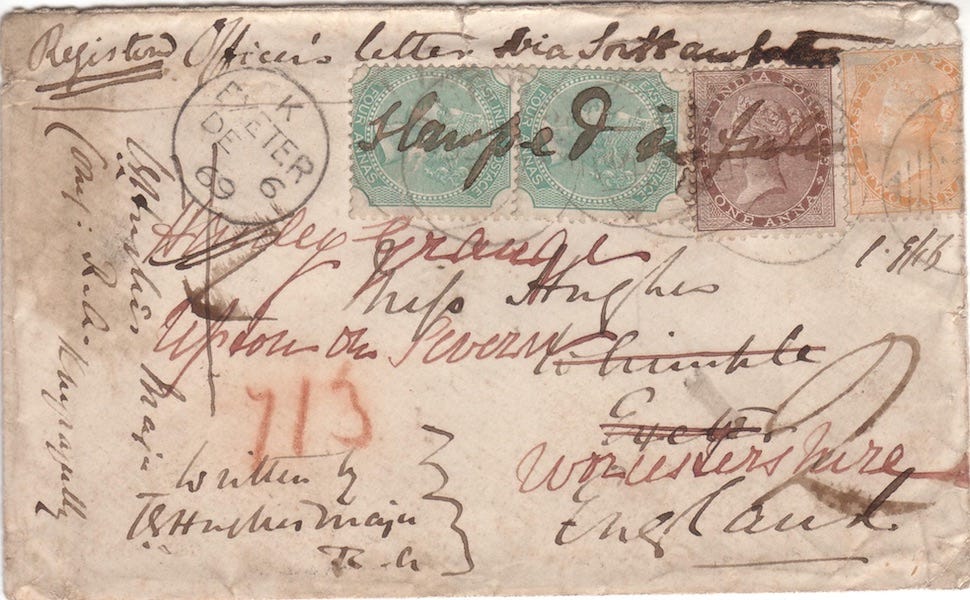 Registered Officer's letter via Southampton
stamped in full
EXETER
K
DE 6
69
EAST INDIA POSTAGE
FOUR ANNAS
EAST INDIA POSTAGE
FOUR ANNAS
EAST INDIA POSTAGE
ONE ANNA
EAST INDIA POSTAGE
TWO ANNAS
Grange
Miss Hughes
Upton on Severn
Whimple
Exeter
Worcestershire
England
713
2
Written by
Hughes Major
R.A.
Hughes Major
Comg: R.A.